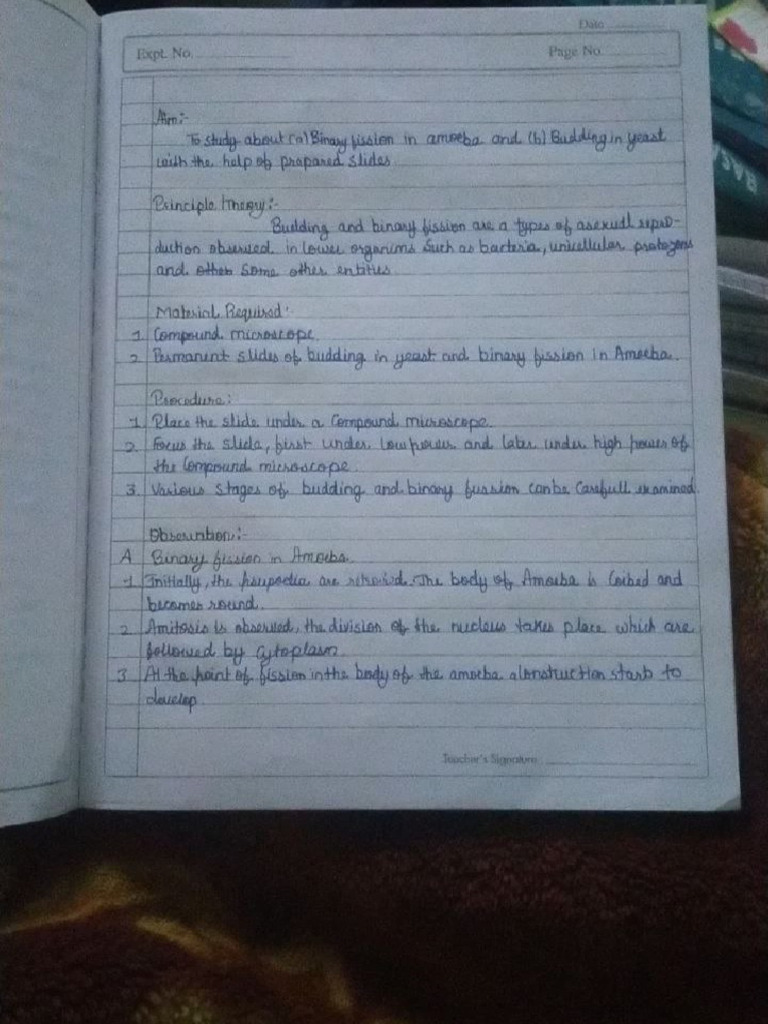 Date
Expt. No.
Page No.
Aim:-
To study about (a) Binary fission in amoeba and (b) Budding in yeast
with the help of prepared slides
Principle theory:-
Building and binary fission are a types of asexual repro-
duction observed in lower organims such as bacteria, unicellular protozoans
and other some other entities
Material Required:
1. Compound microscope.
2. Permanent slides of budding in yeast and binary fission in Amoeba.
Procedure:
1 Place the slide under a compound microscope.
2. Focus the slide, first under low power and later under high power of
the compound microscope.
3. Various stages of budding and binary can be Carefull examined
Observation:-
A Binary fission in Amoeba.
1 Initially, the are The body of Amoeba is and
becomes round.
2 Amitosis is observed, the division of the nucleus takes place which are
followed by cytoplasm
3 At the point of fission in the body of the amoeba start to
develop
Teacher's Signature